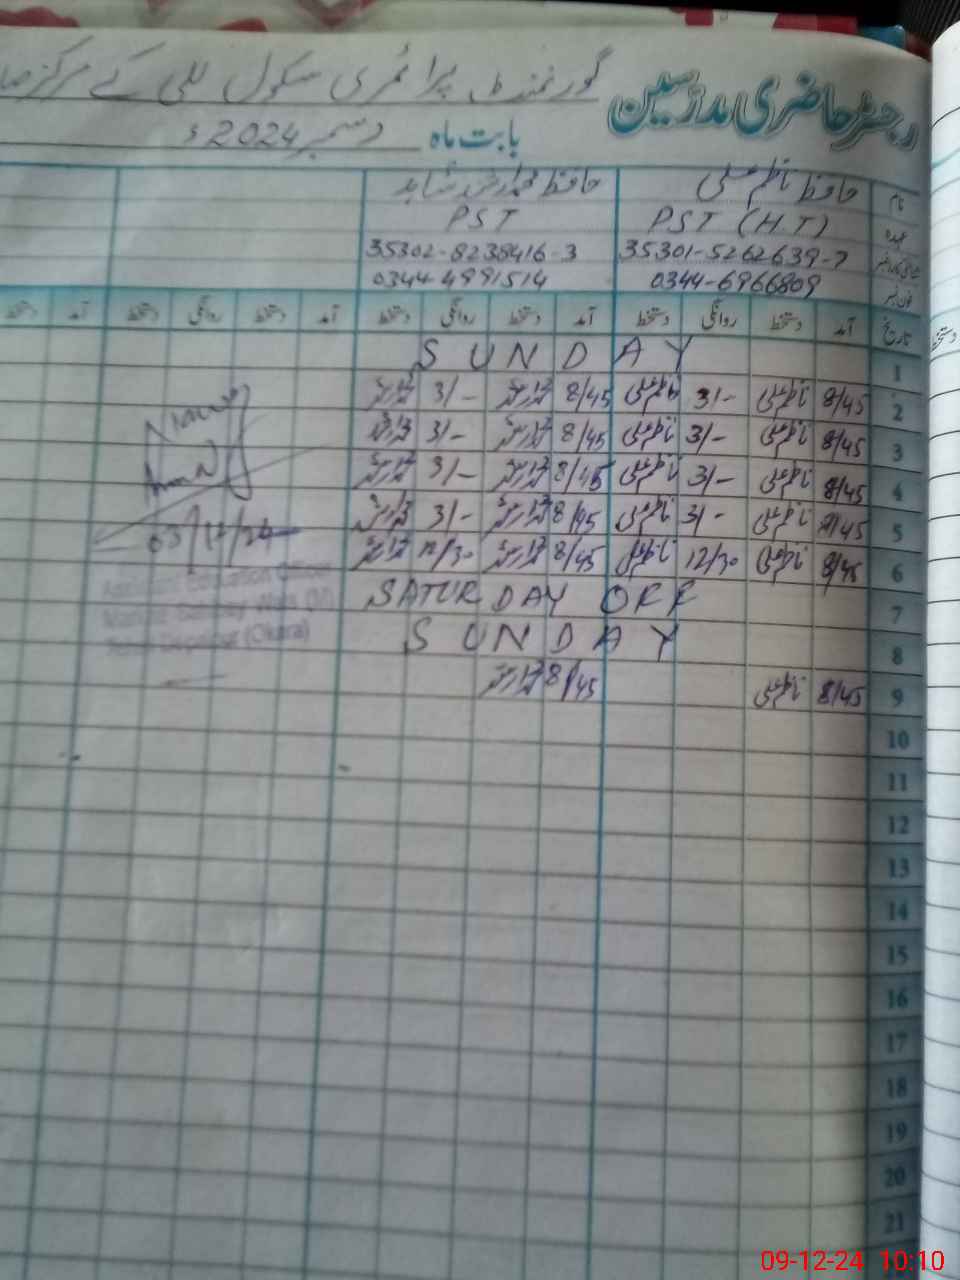 رجسٹر حاضری مدرسین گورنمنٹ پرائمری سکول للی کے مرکز
بابت ماہ دسمبر 2024ء
نام حافظ ناظم علی حافظ محمد ارشد شاہد
عہدہ PST (H.T) PST
35301-5262639-7 35302-8238416-3
فون نمبر 0344-6966809 0344-4991514
تاریخ آمد دستخط روانگی دستخط آمد دستخط روانگی دستخط آمد دستخط روانگی دستخط آمد دستخط
دستخط
1 SUNDAY
2 8/45 ناظم علی 3/- ناظم علی 8/45 3/-
3 8/45 ناظم علی 3/- ناظم علی 8/45 3/-
4 8/45 ناظم علی 3/- ناظم علی 8/45 3/-
5 8/45 ناظم علی 3/- ناظم علی 8/45 3/-
6 8/45 ناظم علی 12/30 ناظم علی 8/45 12/30
7 SATURDAY OFF
8 SUNDAY
9 8/45 ناظم علی 8/45
10
11
12
13
14
15
16
17
18
19
20
21
03/12/24
Assistant Education Officer
(M)
(Okara)
09-12-24 10:10